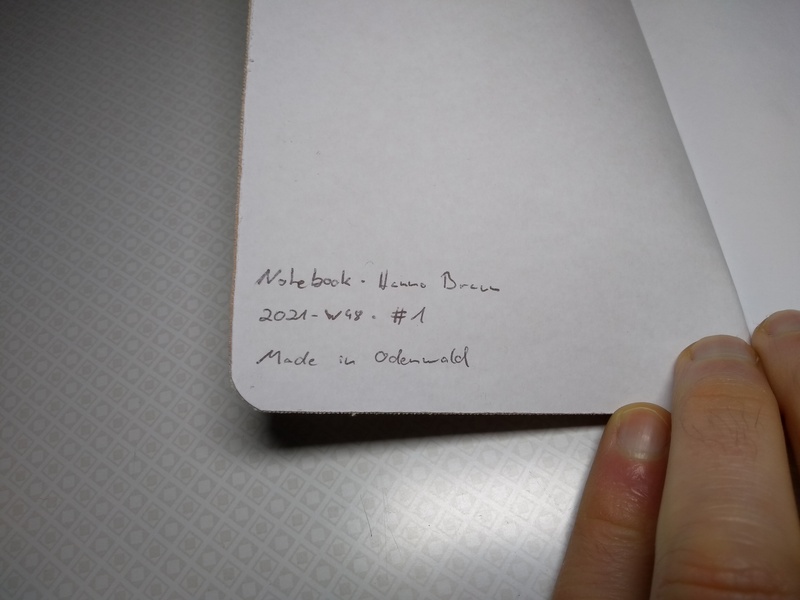 Notebook - Hanno Braun
2021-W48 - #1
Made in Odenwald